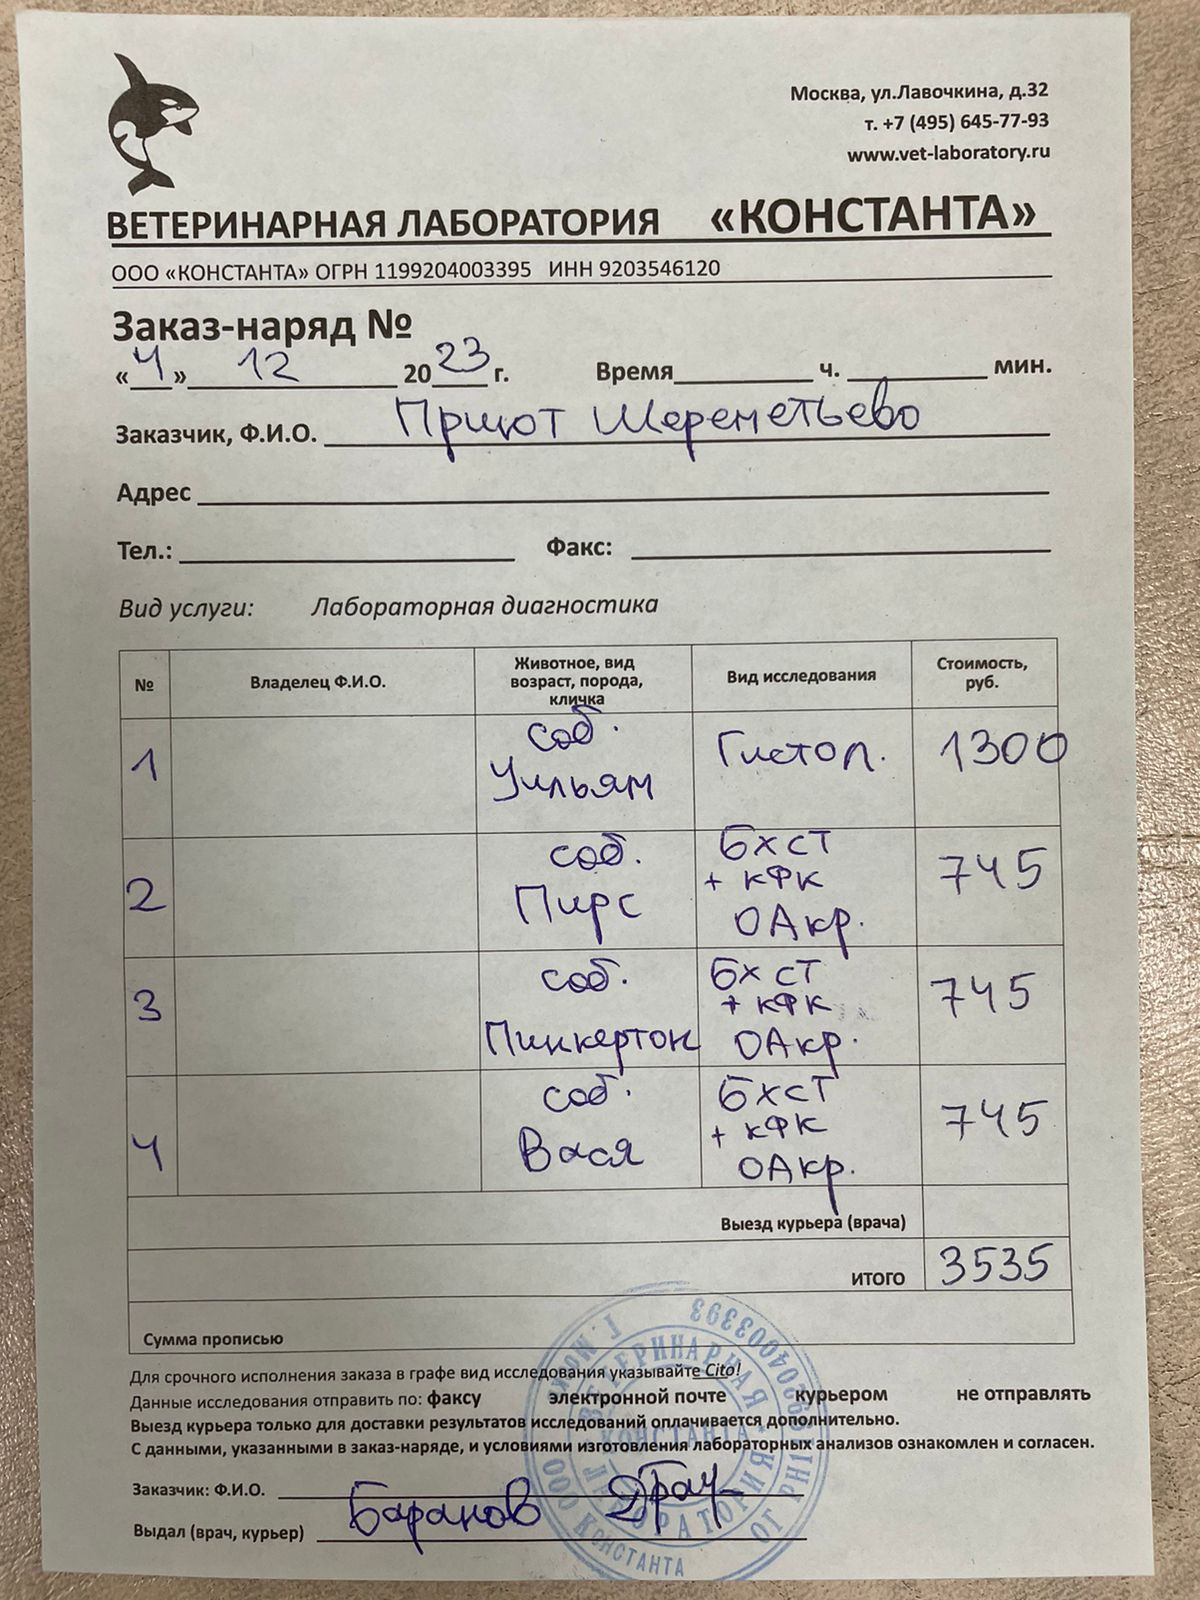 Москва, ул.Лавочкина, д.32
т. +7 (495) 645-77-93
www.vet-laboratory.ru
ВЕТЕРИНАРНАЯ ЛАБОРАТОРИЯ «КОНСТАНТА»
ООО «КОНСТАНТА» ОГРН 1199204003395 ИНН 9203546120
Заказ-наряд №
«4» 12 2023 г. Время ч. мин.
Заказчик, Ф.И.О. Приют Шереметьево
Адрес
Тел.: Факс:
Вид услуги: Лабораторная диагностика
№ Владелец Ф.И.О. Животное, вид возраст, порода, кличка Вид исследования Стоимость, руб.
1 соб. Уильям Гистол. 1300
2 соб. Пирс БХ СТ + КФК ОАкр. 745
3 соб. Пинкертон БХ СТ + КФК ОАкр. 745
4 соб. Вася БХ СТ + КФК ОАкр. 745
Выезд курьера (врача)
ИТОГО 3535
Сумма прописью
Для срочного исполнения заказа в графе вид исследования указывайте Cito!
Данные исследования отправить по: факсу электронной почте курьером не отправлять
Выезд курьера только для доставки результатов исследований оплачивается дополнительно.
С данными, указанными в заказ-наряде, и условиями изготовления лабораторных анализов ознакомлен и согласен.
Заказчик: Ф.И.О.
Выдал (врач, курьер) Баранов
ВЕТЕРИНАРНАЯ ЛАБОРАТОРИЯ
КОНСТАНТА
ООО КОНСТАНТА